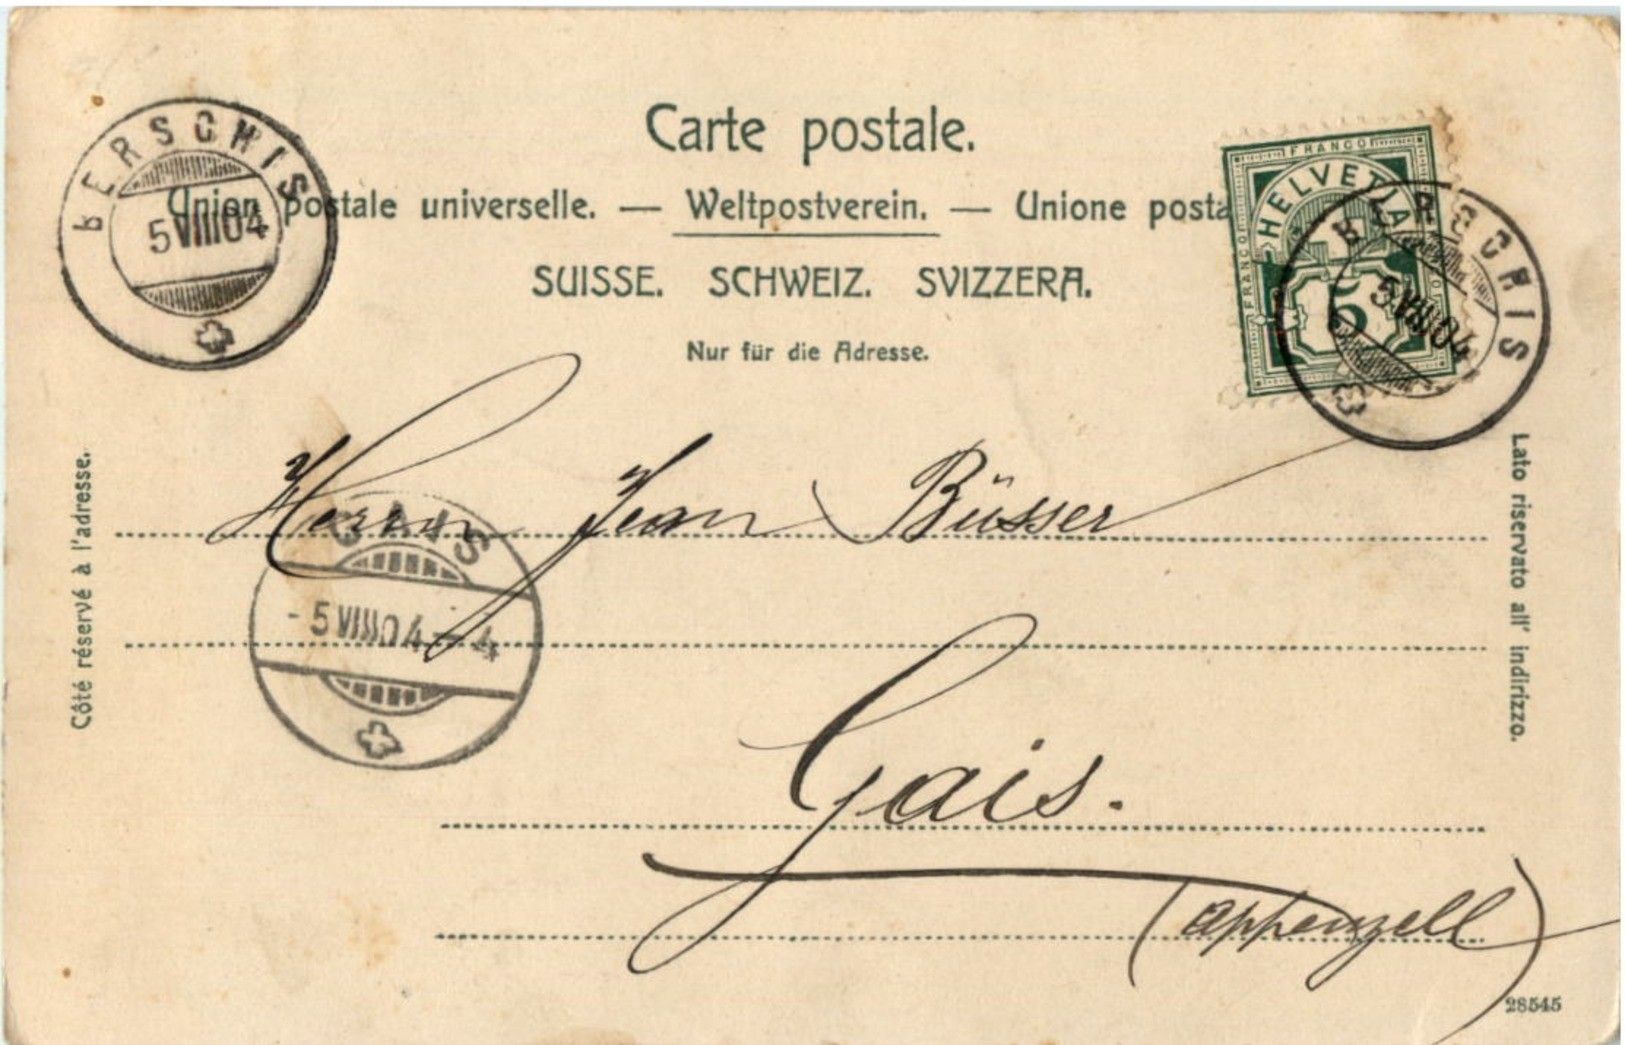 Carte postale.
Union postale universelle. — Weltpostverein. — Unione posta
SUISSE. SCHWEIZ. SVIZZERA.
Nur für die Adresse.
BERSCHIS
5 VIII 04
FRANCO
HELVETIA
FRANCO
FRANCO
5
BERSCHIS
5 VIII 04
Côté réservé à l'adresse.
Lato riservato all' indirizzo.
Herrn Jean Büsser
GAIS
- 5 VIII 04 - 4
Gais.
(Appenzell)
28545